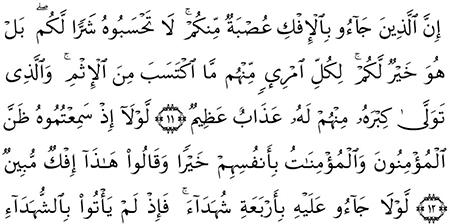 إِنَّ ٱلَّذِينَ جَآءُو بِٱلْإِفْكِ عُصْبَةٌ مِّنكُمْ ۚ لَا تَحْسَبُوهُ شَرًّا لَّكُم ۖ بَلْ
هُوَ خَيْرٌ لَّكُمْ ۚ لِكُلِّ ٱمْرِئٍ مِّنْهُم مَّا ٱكْتَسَبَ مِنَ ٱلْإِثْمِ ۚ وَٱلَّذِى
تَوَلَّىٰ كِبْرَهُۥ مِنْهُمْ لَهُۥ عَذَابٌ عَظِيمٌ ﴿١١﴾ لَّوْلَآ إِذْ سَمِعْتُمُوهُ ظَنَّ
ٱلْمُؤْمِنُونَ وَٱلْمُؤْمِنَٰتُ بِأَنفُسِهِمْ خَيْرًا وَقَالُوا۟ هَٰذَآ إِفْكٌ مُّبِينٌ
﴿١٢﴾ لَّوْلَا جَآءُو عَلَيْهِ بِأَرْبَعَةِ شُهَدَآءَ ۚ فَإِذْ لَمْ يَأْتُوا۟ بِٱلشُّهَدَآءِ